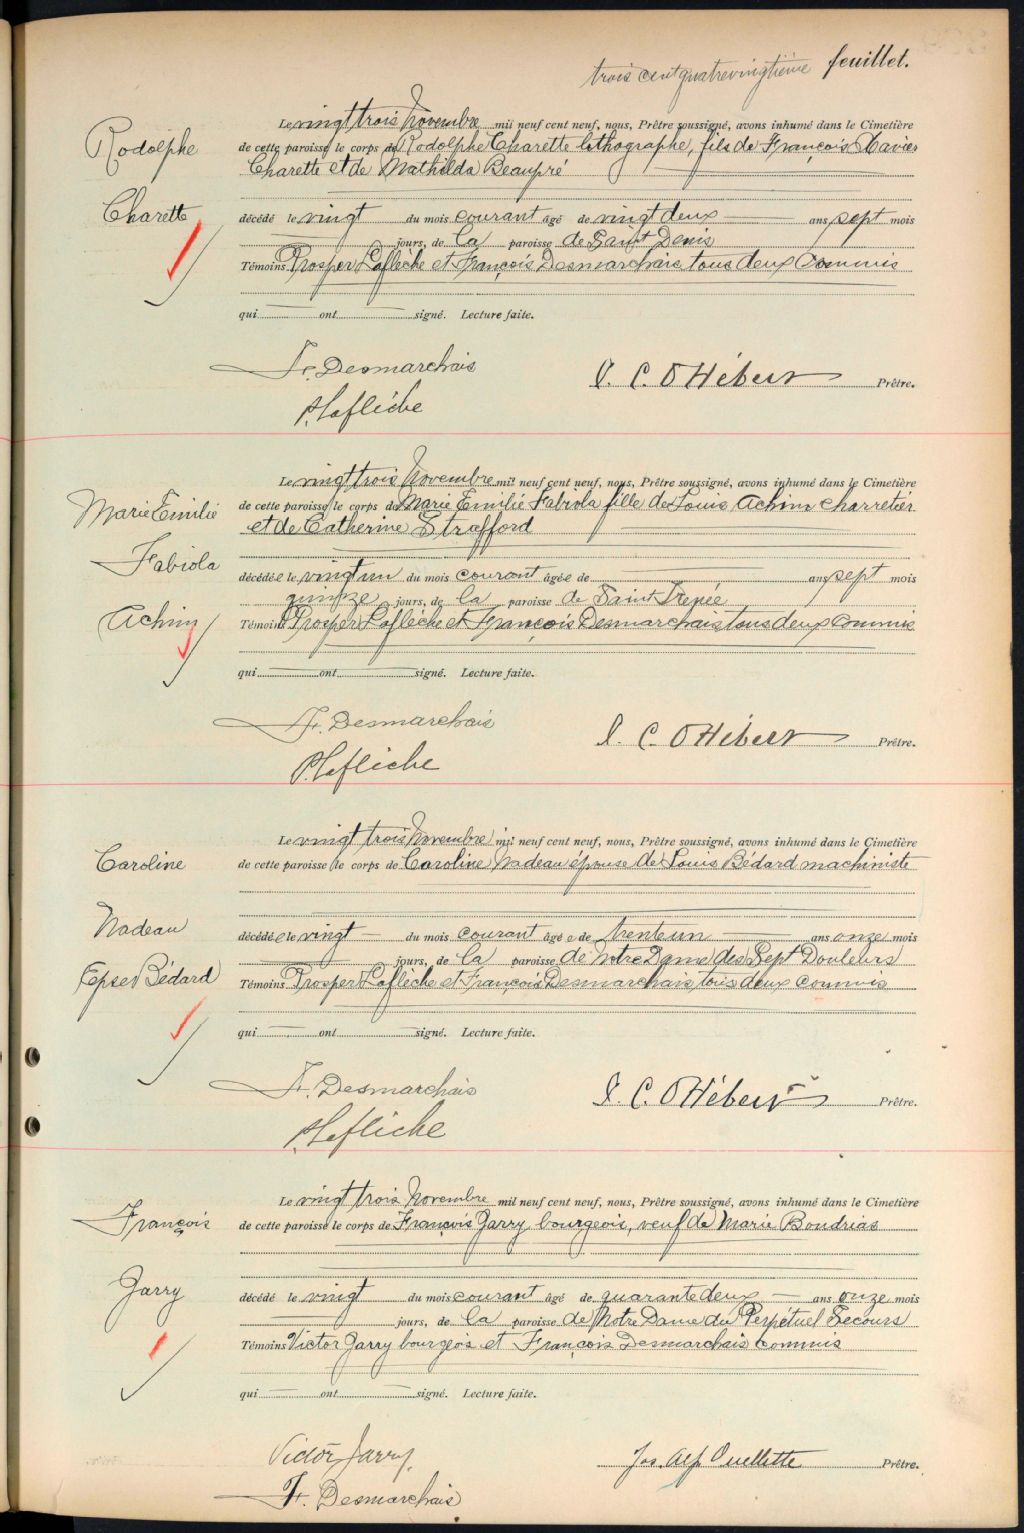 trois cent quatrevingtième feuillet.
Le vingt trois Novembre mil neuf cent neuf, nous, Prêtre soussigné, avons inhumé dans le Cimetière
Rodolphe
de cette paroisse le corps de Rodolphe Charette lithographe, fils de François Xavier
Charette et de Mathilda Beaupré
Charette
décédé le vingt du mois courant âgé de vingt deux ans sept mois
jours, de la paroisse de Saint Denis
Témoins Prosper Laflèche et François Desmarchais tous deux Commis
qui ont signé. Lecture faite.
Fr. Desmarchais
J. C. O Hébert Prêtre.
P. Laflèche
Le vingt trois Novembre mil neuf cent neuf, nous, Prêtre soussigné, avons inhumé dans le Cimetière
Marie Emilie
de cette paroisse le corps de Marie Emilie Fabiola fille de Louis Achim charretier
et de Catherine Strafford
Fabiola
décédée le vingt un du mois courant âgée de ans sept mois
quinze jours, de la paroisse de Saint Irenée
Achim
Témoins Prosper Laflèche et François Desmarchais tous deux commis
qui ont signé. Lecture faite.
Fr. Desmarchais
J. C. O Hébert Prêtre.
P. Laflèche
Le vingt trois Novembre mil neuf cent neuf, nous, Prêtre soussigné, avons inhumé dans le Cimetière
Caroline
de cette paroisse le corps de Caroline Nadeau épouse de Louis Bédard machiniste
Nadeau
décédée le vingt du mois courant âgée de trente un ans onze mois
jours, de la paroisse de Notre Dame des Sept Douleurs
Epse Bédard
Témoins Prosper Laflèche et François Desmarchais tous deux commis
qui ont signé. Lecture faite.
Fr. Desmarchais
J. C. O Hébert Prêtre.
P. Laflèche
Le vingt trois Novembre mil neuf cent neuf, nous, Prêtre soussigné, avons inhumé dans le Cimetière
François
de cette paroisse le corps de François Jarry bourgeois, veuf de Marie Boudrias
Jarry
décédé le vingt du mois courant âgé de quarante deux ans onze mois
jours, de la paroisse de Notre Dame du Perpétuel Secours
Témoins Victor Jarry bourgeois et François Desmarchais commis
qui ont signé. Lecture faite.
Victor Jarry
Jos. Alf. Ouellette Prêtre.
Fr. Desmarchais